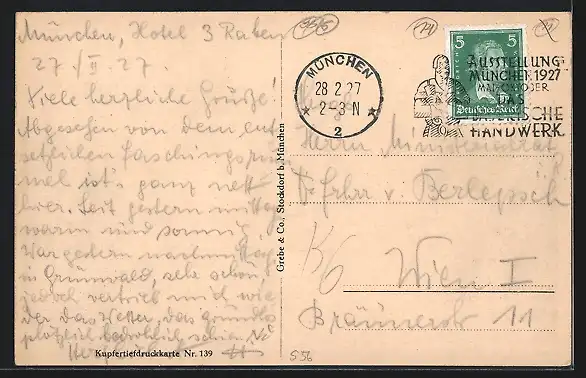 München, Hotel 3 Raben
27/II. 27.
Viele herzliche Grüße!
Abgesehen von dem ent
setzlichen Faschingsrum
mel ist's ganz nett
hier. Seit gestern mittag
warm und sonnig.
War gestern nachm.
in Grünwald, sehr schön,
jedoch vertrieb mich wie
der das Wetter, das
plötzlich bedrohlich schien.
Herzlichst
Kupfertiefdruckkarte Nr. 139
Grebe & Co., Stockdorf b. München
MÜNCHEN
28 2 27
2-3 N
2
5 5
Deutsches Reich
AUSSTELLUNG
MÜNCHEN 1927
MAI-OKTOBER
DAS
BAYERISCHE
HANDWERK
Herrn Ministerialrat
Dr Frhr v. Berlepsch
Wien I
Bräunerstr 11
S56